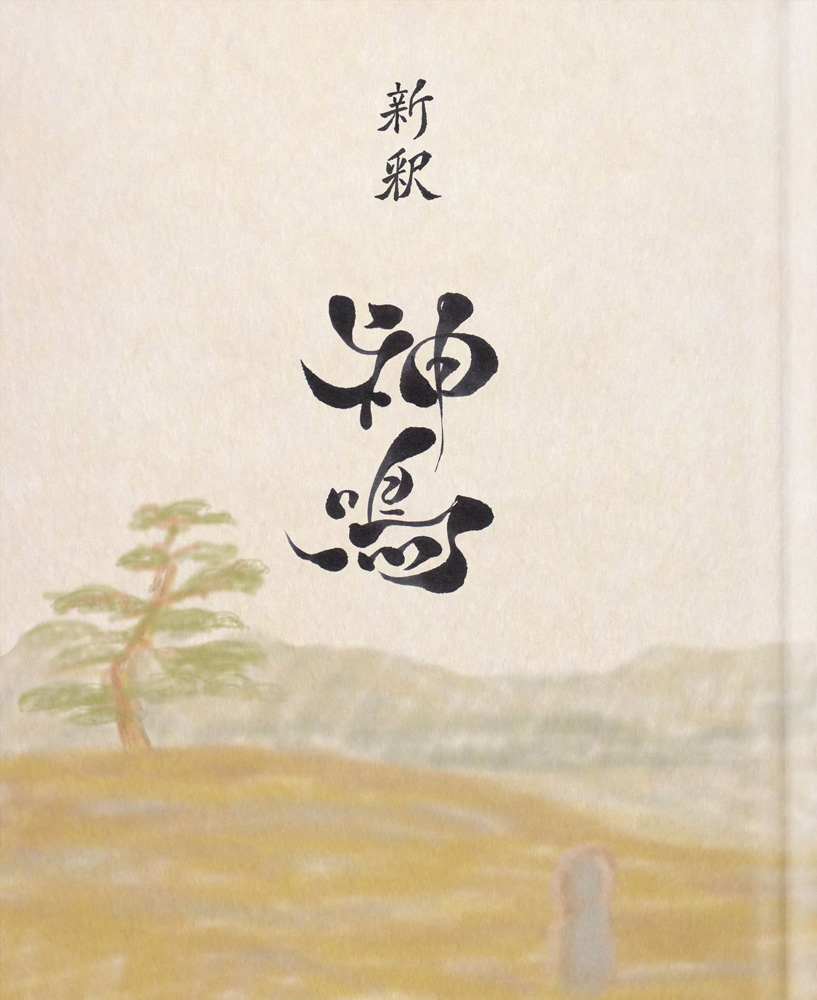 新釈
神鳴